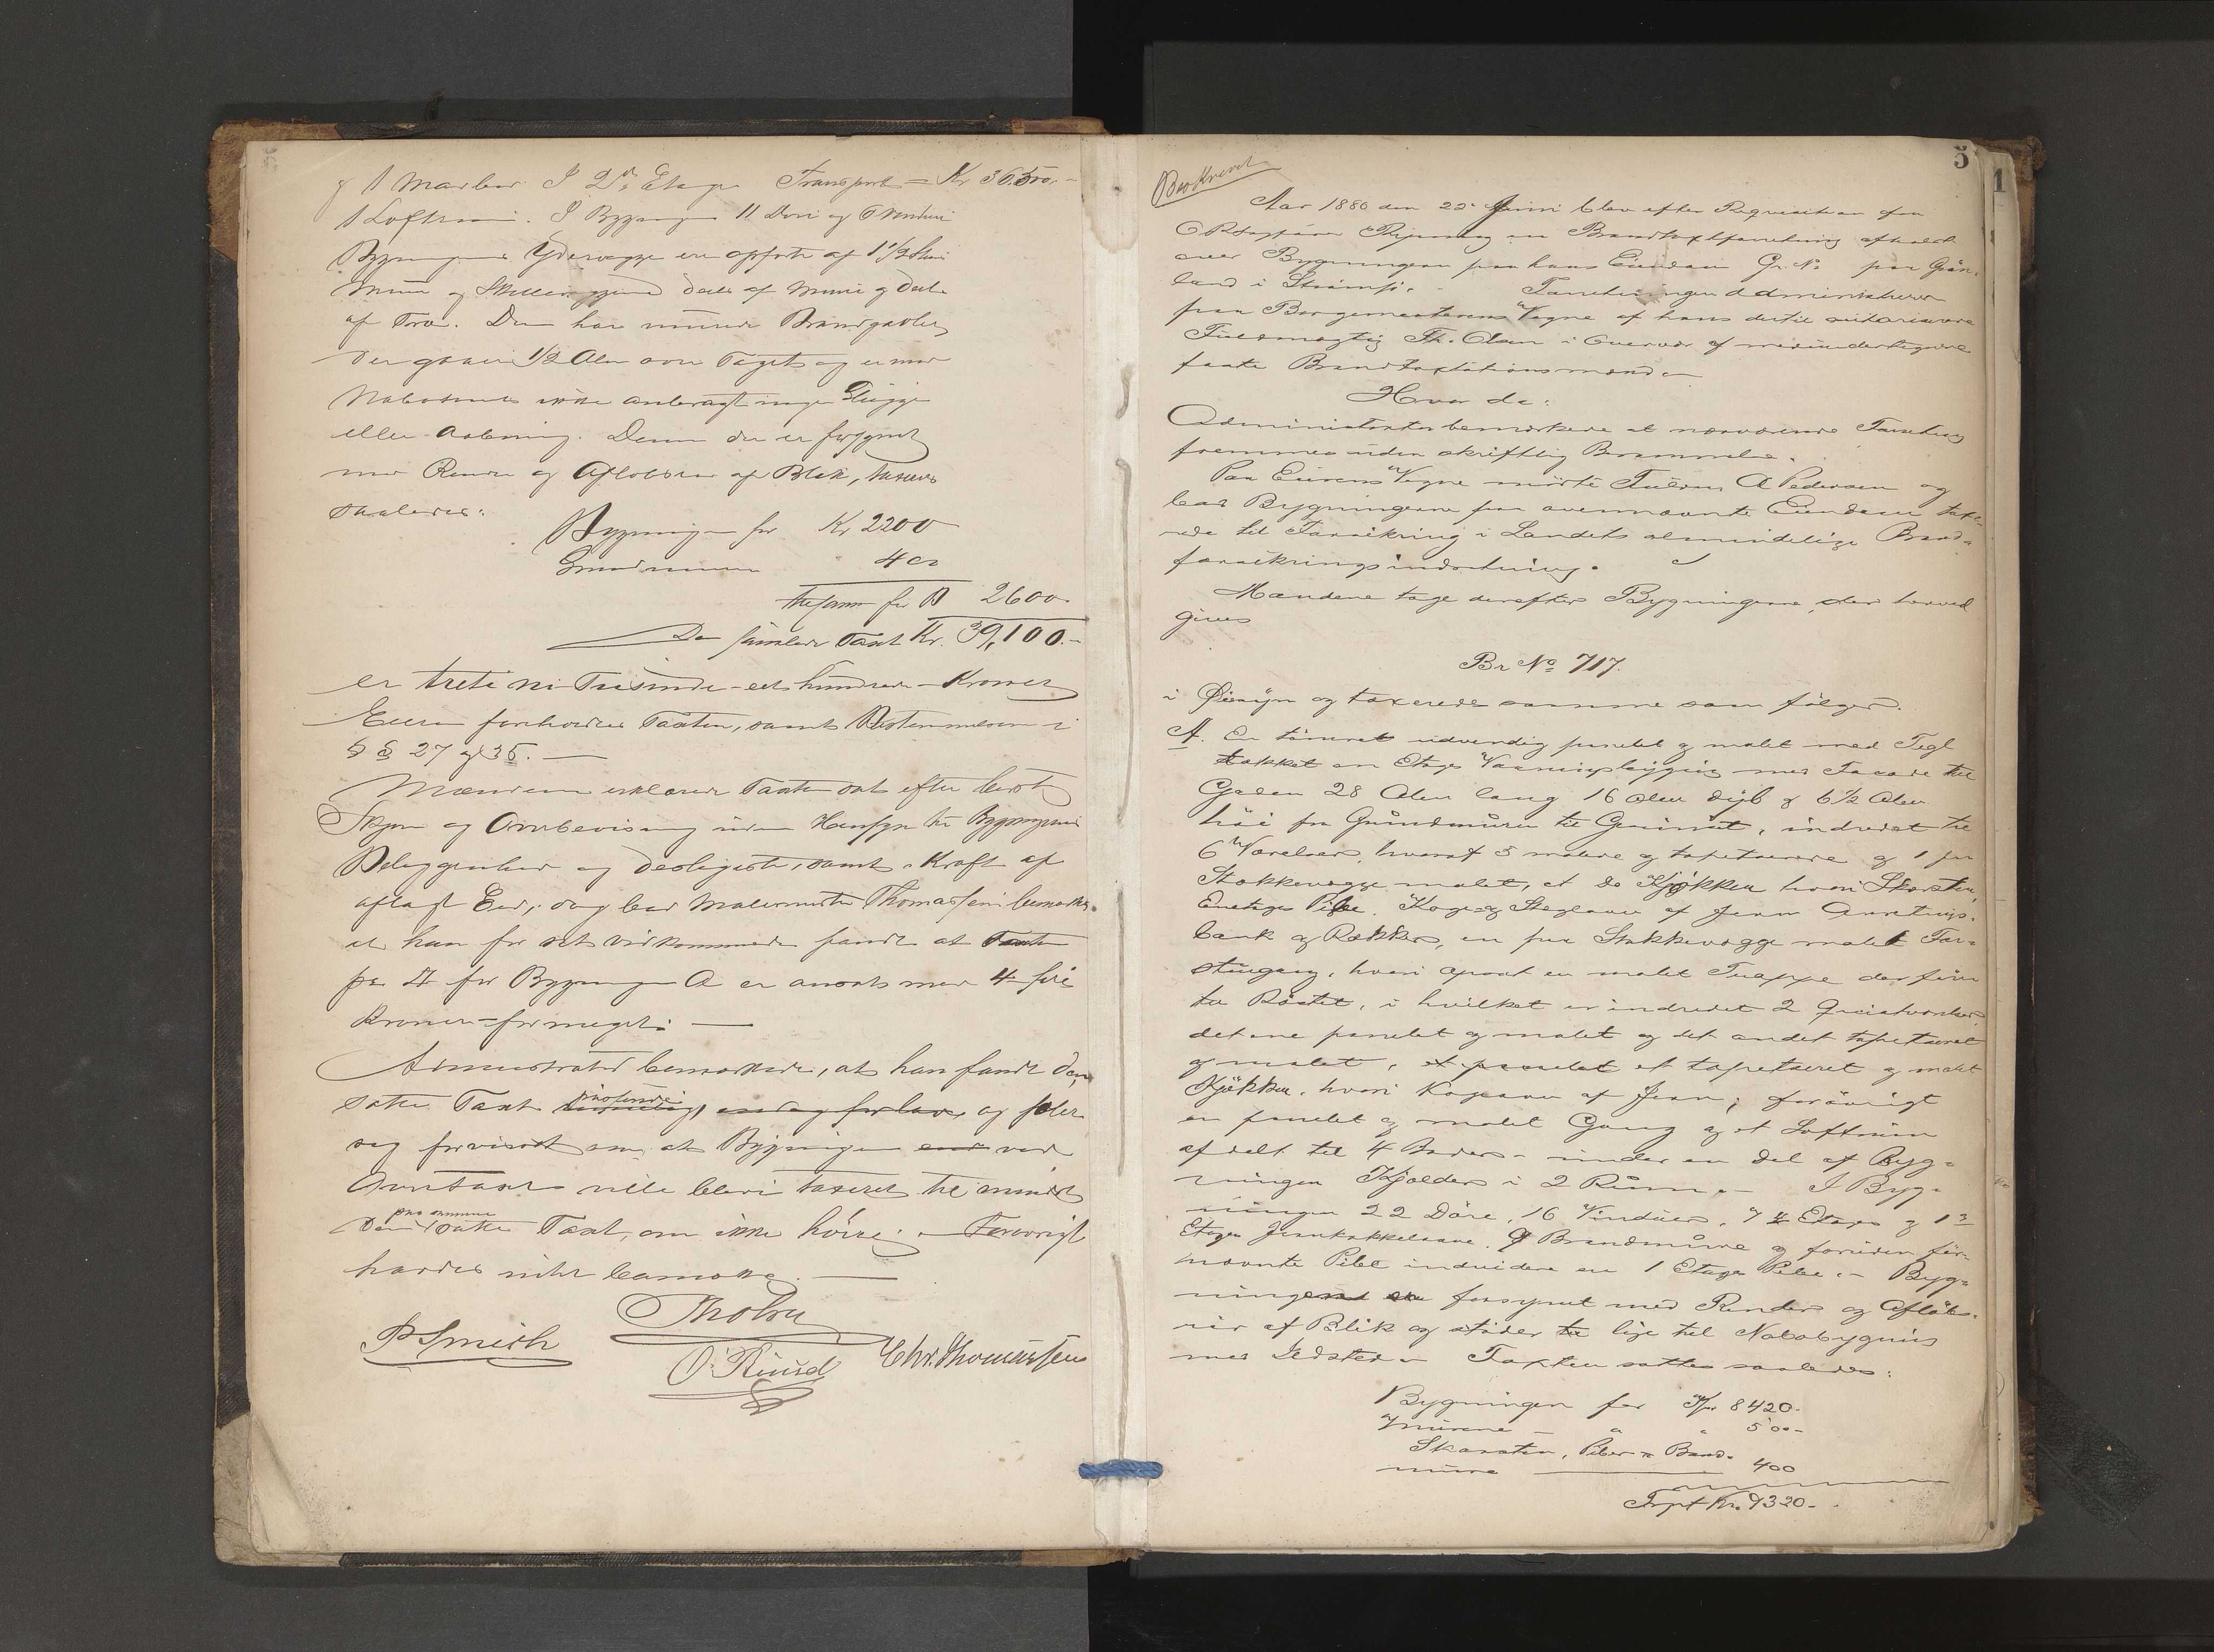 & 1 Madbod. I 2den Etage Transport = Kr 36.500.-
1 Loftrum. I Bygningen 11 Döre og 6 Vinduer
Bygningens Ydervægge ere opførte af 1 1/2 Stens
Muur og Skillevæggene dels af Muur og dels
af Træ. Den har murede Brandgavler,
der gaaer 1/2 Alen over Taget og er mod
Naboerne ikke anbragt nogen Glugge
eller Aabning. Denne der er forsynet
med Render og Afløbsrør af Blik, taxeres
saaledes:
Bygningen for Kr 2200
Grundmuren 400
tilsammen for D 2600
Den samlede Taxt Kr. 39,100.-
er treti ni Tusinde - et hundrede - Kroner
Eieren foreholdtes Taxten, samt Bestemmelsen i
§ § 27 og 35. —
Mændene erklærede Taxten sat efter bedste
Skjøn og Overbevisning uden Hensyn til Bygningernes
Beliggenhed og desligeste, samt i Kraft af
aflagt Eed, dog bad Malermester Thomassen bemærket
at han for sit Vidkommende fandt at Taxten
pr for Bygningen A er ansat med 4 fire
Kroner for meget. —
Administrator bemærkede, at han fandt den
satte Taxt og føler
sig forvisset om, at Bygningen ved
Omtaxt vilde blive taxeret til mindst
paa samme
den satte Taxt, om ikke høiere. — Forøvrigt
havdes intet at bemærke. —
Tholsen
P Smith
O. Ruud Chr. Thomassen
5
1
Beskrevet
Aar 1886 den 22de Juni blev efter Requisition fra
en Brandtaxtforretning afholdt
over Bygningerne paa hans Eiendom Gr. No paa Grön-
land i Strömsö. Forretningen administreres
paa Borgemesterens Vegne af hans dertil autoriserede
Fuldmægtig Th. Olsen i Overvær af medundertegnede
faste Brandtaxtationsmænd —
Hvor da:
Administrator bemærkede at nærværende Forretning
fremmes uden skriftlig Berammelse.
Paa Eierens Vegne mödte Fuldm. A Pedersen og
bad Bygningerne paa ovennævnte Eiendom taxe-
rede til Forsikring i Landets almindelige Brand-
forsikringsindretning.
Mændene tage derefter Bygningerne, der herved
gives
Br No 717.
i Öiesyn og taxerede samme som fölger.
A. En tömret udvendig panelet og malet med Tegl
takket en Etages Vaaningsbygning med Facade til
Gaden 28 Alen lang 16 Alen dyb & 6 1/2 Alen
höi fra Grundmuren til Gesimset, indredet til
6 Værelser, hvoraf 5 malede og tapetserede og 1 paa
Stokkevægge malet, et do Kjökken hvori Skorsten,
Enetages Pibe, Koge og Stegeovn af Jern Anretnings-
bænk og Rækker, en paa Stokkevægge malet For-
stuegang, hvori opsat en malet Trappe der förer
til Röstet, i hvilket er indredet 2 Qvistværelser
det ene panelet og malet og det andet tapetseret
og malet, et panelet et tapetseret og malet
Kjökken, hvori Kogeovn af Jern; forövrigt
en panelet og malet Gang og et Loftrum
afdelt til 4 Boder - under en Del af Byg-
ningen Kjælder i 2 Rum. - I Byg-
ningen 22 Döre, 16 Vinduer, 7 2 Etages og 1 3
Etages Jernkakkelovne, 9 Brandmure og foruden för-
nævnte Pibe endvidere en 1 Etages Pibe. - Byg-
ningen er forsynet med Render og Aflöbs-
rör af Blik og stöder lige til Nabobygning
med Ildsted. - Taxten sattes saaledes:
Bygningen for Kr 8420-
Murene — " " 500-
Skorsten, Piber & Brand-
mure — 400
Trpt Kr. 9320-